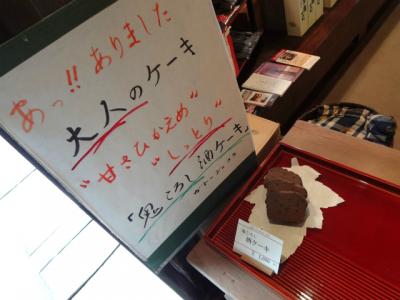 あっ!!ありました
大人のケーキ
"甘さひかえめ"
"しっとり"
「鬼ころし酒ケーキ」
鬼ころし
酒ケーキ